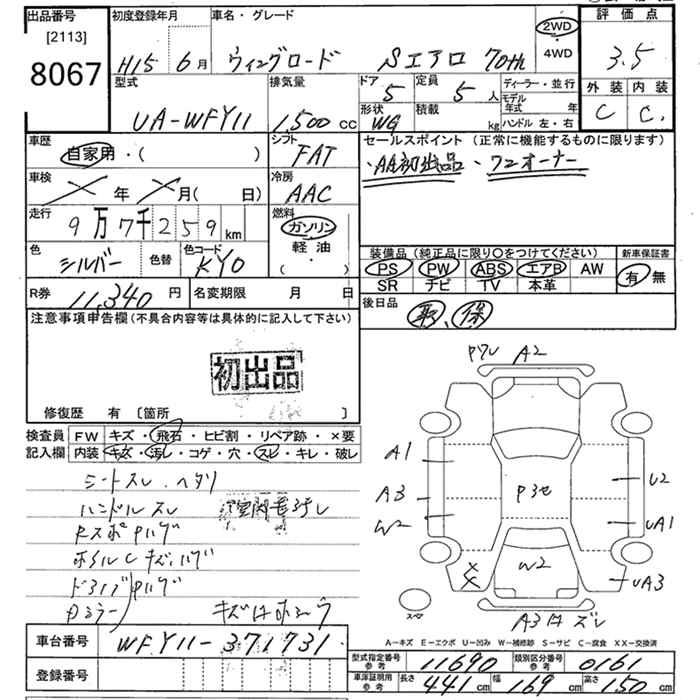 出品番号
[2113]
8067
初度登録年月
H15 6月
車名・グレード
ウィングロード Sエアロ 70th
2WD
・
4WD
評価点
3.5
外装 内装
C C.
型式
UA-WFY11
排気量
1,500 CC
ドア
5
定員
5 人
形状
WG
積載
kg
ディーラー・並行
モデル年式 年
ハンドル 左・右
車歴
自家用・( )
シフト
FAT
セールスポイント(正常に機能するものに限ります)
・AA初出品・ワンオーナー
車検
年 月( 日)
冷房
AAC
走行
9万7千259km
燃料
ガソリン
軽油
・( )
色
シルバー
色替
色コード
KY0
装備品(純正品に限り〇をつけてください)
PS PW ABS エアB AW
SR ナビ TV 本革
新車保証書
有・無
R券 11,340円
名変期限 月 日
後日品
取、保
注意事項申告欄(不具合内容等は具体的に記入して下さい)
初出品
修復歴 有 [箇所 ]
検査員
記入欄
FW キズ・飛石・ヒビ割・リペア跡・×要
内装 キズ・汚レ・コゲ・穴・スレ・キレ・破レ
シートスレ・ヘタリ
ハンドルスレ
キズ
ドア
A2
A1
A3
W2
U2
UA1
UA3
W2
A3
ズレ
A-キズ E-エクボ U-凹み W-補修跡 S-サビ C-腐食 XX-交換済
車台番号 WFY11-371731
登録番号
型式指定番号
参考
11690
類別区分番号
参考
0161
車庫証明用
参考
長さ 441cm 幅 169cm 高さ 150cm